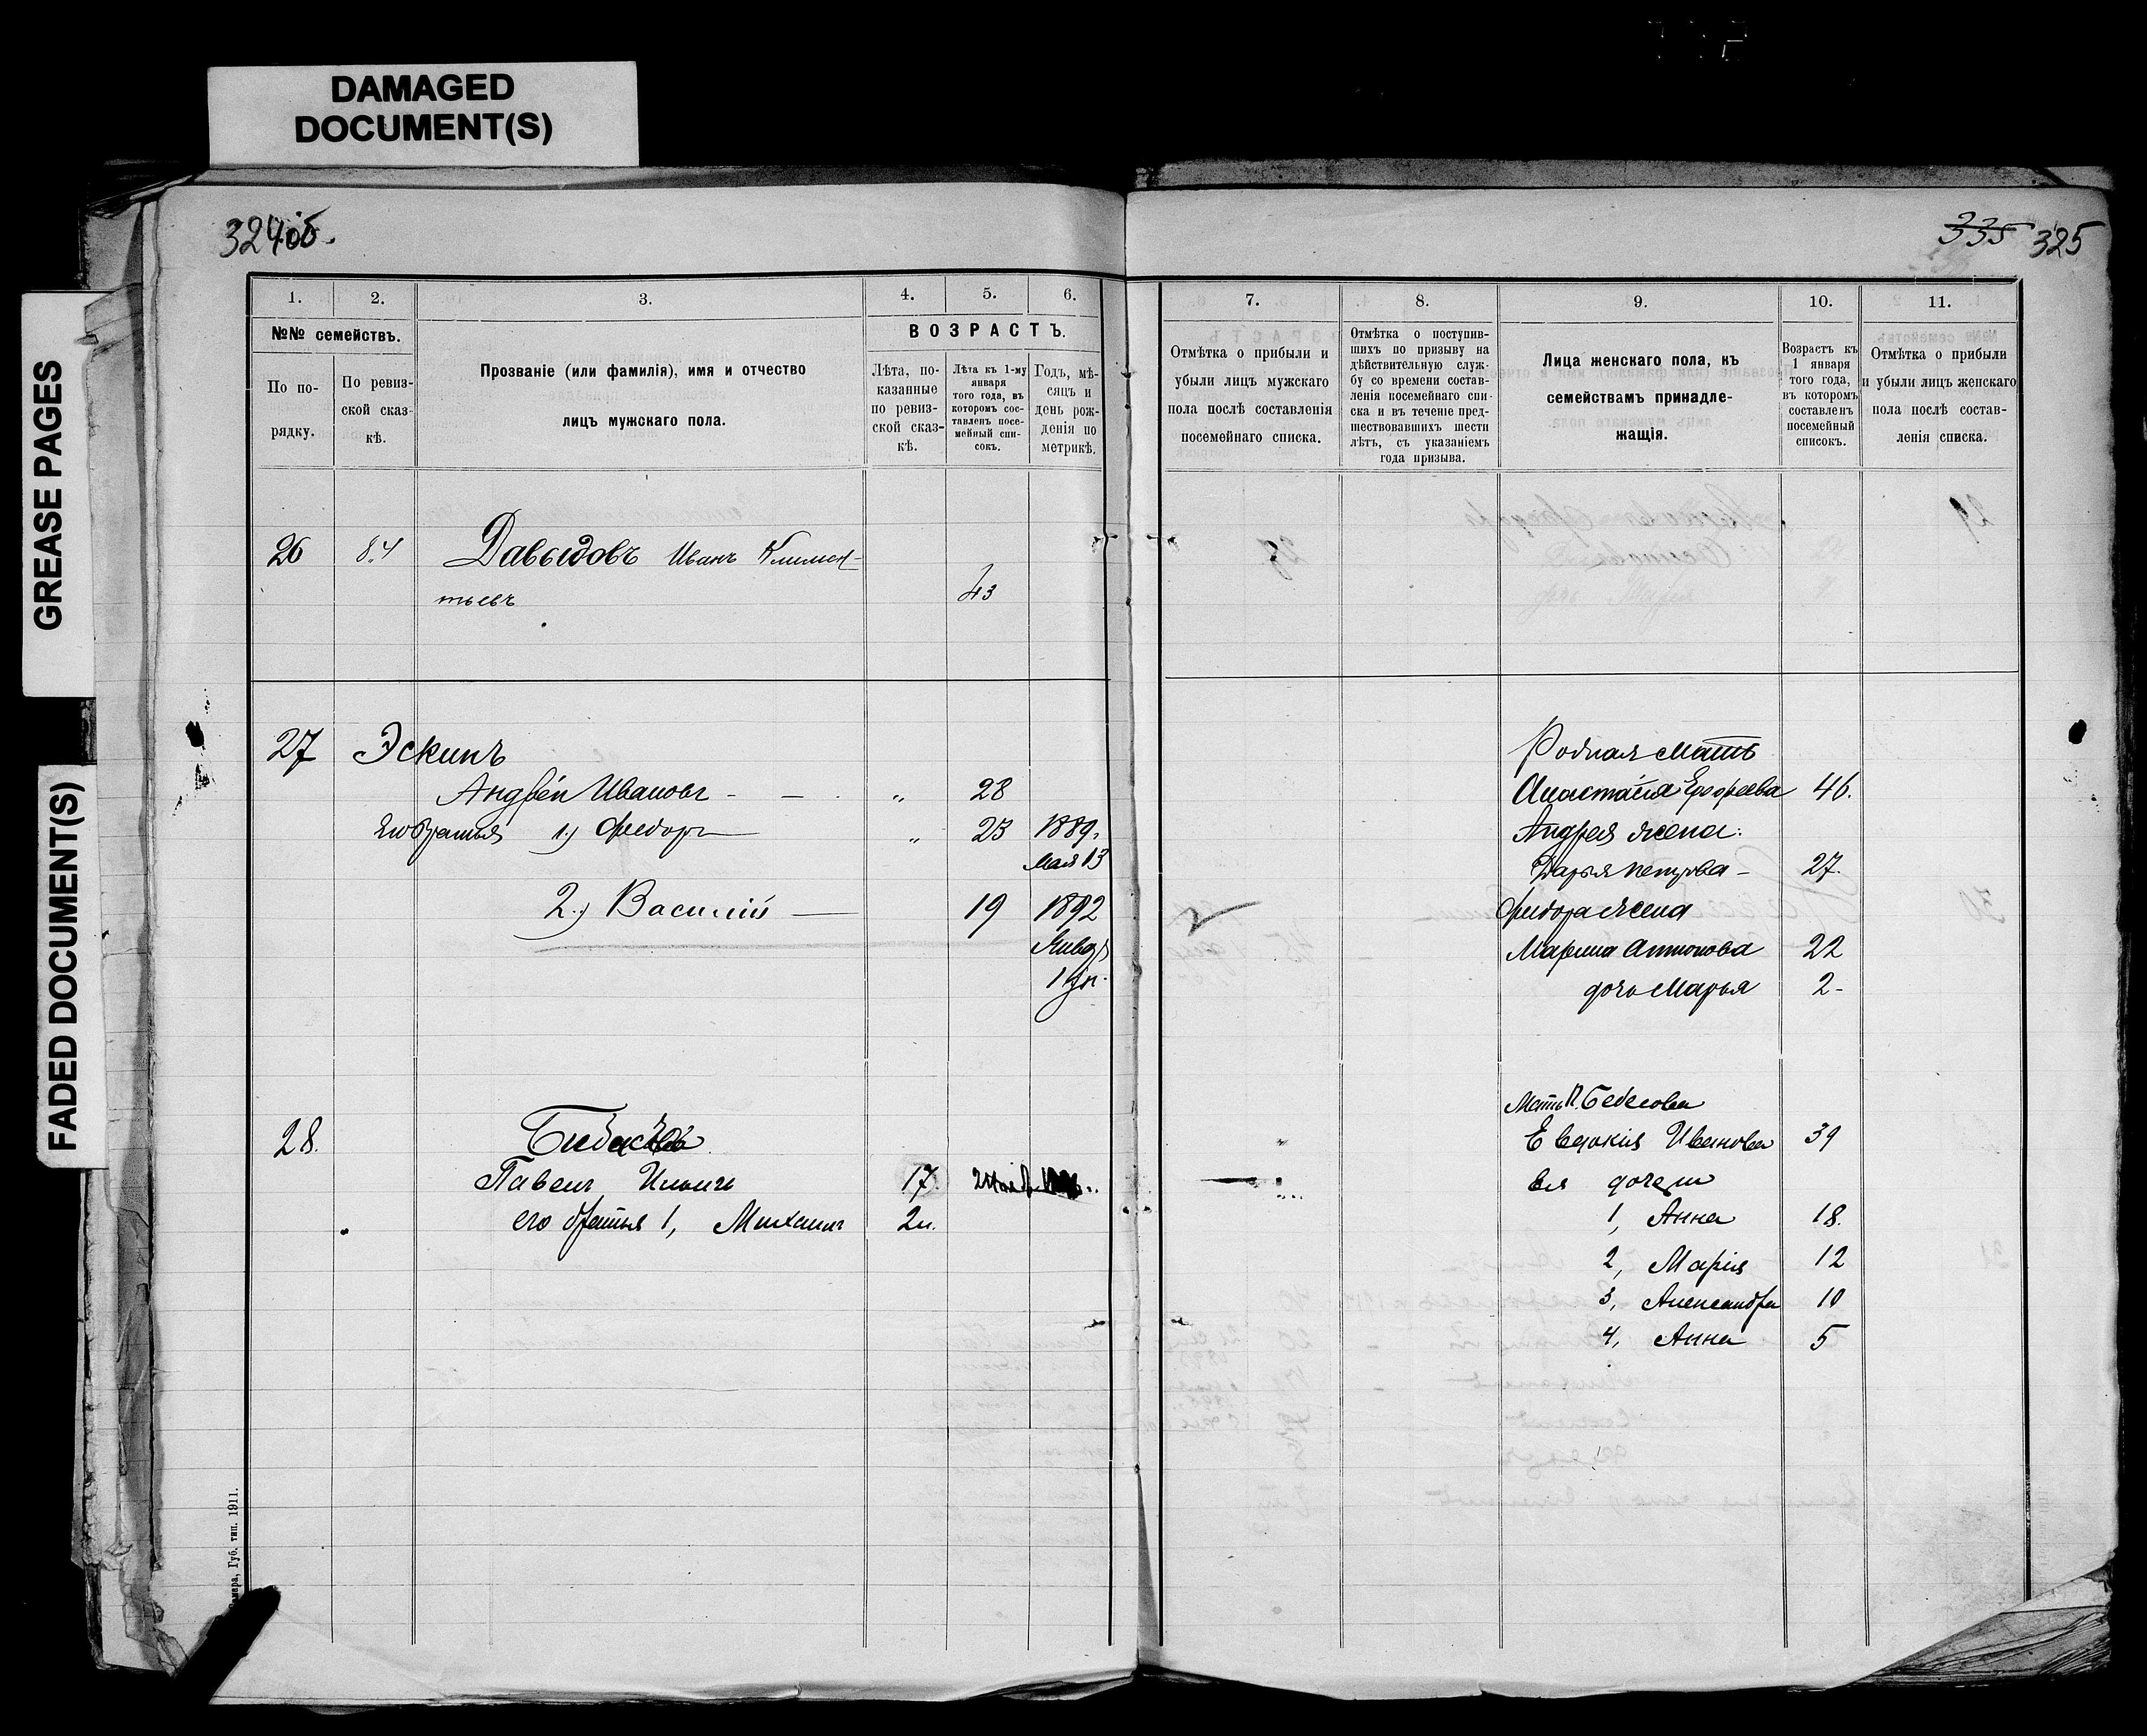 DAMAGED
DOCUMENT(S)
GREASE PAGES
FADED DOCUMENT(S)
324об.
1.
2.
3.
4.
5.
6.
№№ семействъ.
ВОЗРАСТЪ.
По по-
рядку.
По ревиз-
ской сказ-
кѣ.
Прозваніе (или фамилія), имя и отчество
лицъ мужскаго пола.
Лѣта, по-
казанные
по ревиз-
ской сказ-
кѣ.
Лѣта къ 1-му
января
того года, въ
которомъ сос-
тавленъ посе-
мейный спи-
сокъ.
Годъ, мѣ-
сяцъ и
день рож-
денія по
метрикѣ.
26 84 Давыдовъ Иванъ Климен-
тьевъ 43
27 Эскинъ
Андрей Ивановъ - — „ 28
Его братья 1) Федоръ — „ 23 1889.
Мая 13
2.) Василій — 19 1892
Январ
1 дн.
28.
Павелъ Ильичъ 17.
его братья 1, Михаилъ 2н.
Губ. тип. 1911.
335 325
7.
8.
9.
10.
11.
Отмѣтка о прибыли и
убыли лицъ мужскаго
пола послѣ составленія
посемейнаго списка.
Отмѣтка о поступив-
шихъ по призыву на
дѣйствительную служ-
бу со времени состав-
ленія посемейнаго спи-
ска и въ теченіе пред-
шествовавшихъ шести
лѣтъ, съ указаніемъ
года призыва.
Лица женскаго пола, къ
семействамъ принадле-
жащія.
Возрастъ къ
1 января
того года,
въ которомъ
составленъ
посемейный
списокъ.
Отмѣтка о прибыли
и убыли лицъ женскаго
пола послѣ состав-
ленія списка.
Родная мать
Анастасія Ерофеева 46.
Андрея жена:
Дарья Петрова - 27.
Федора жена
Марина Антонова 22
дочь Марья 2-
Мать П.
Евдокія Иванова 39
Ея дочери
1, Анна 18.
2, Марія 12
3, Александра 10
4, Анна 5